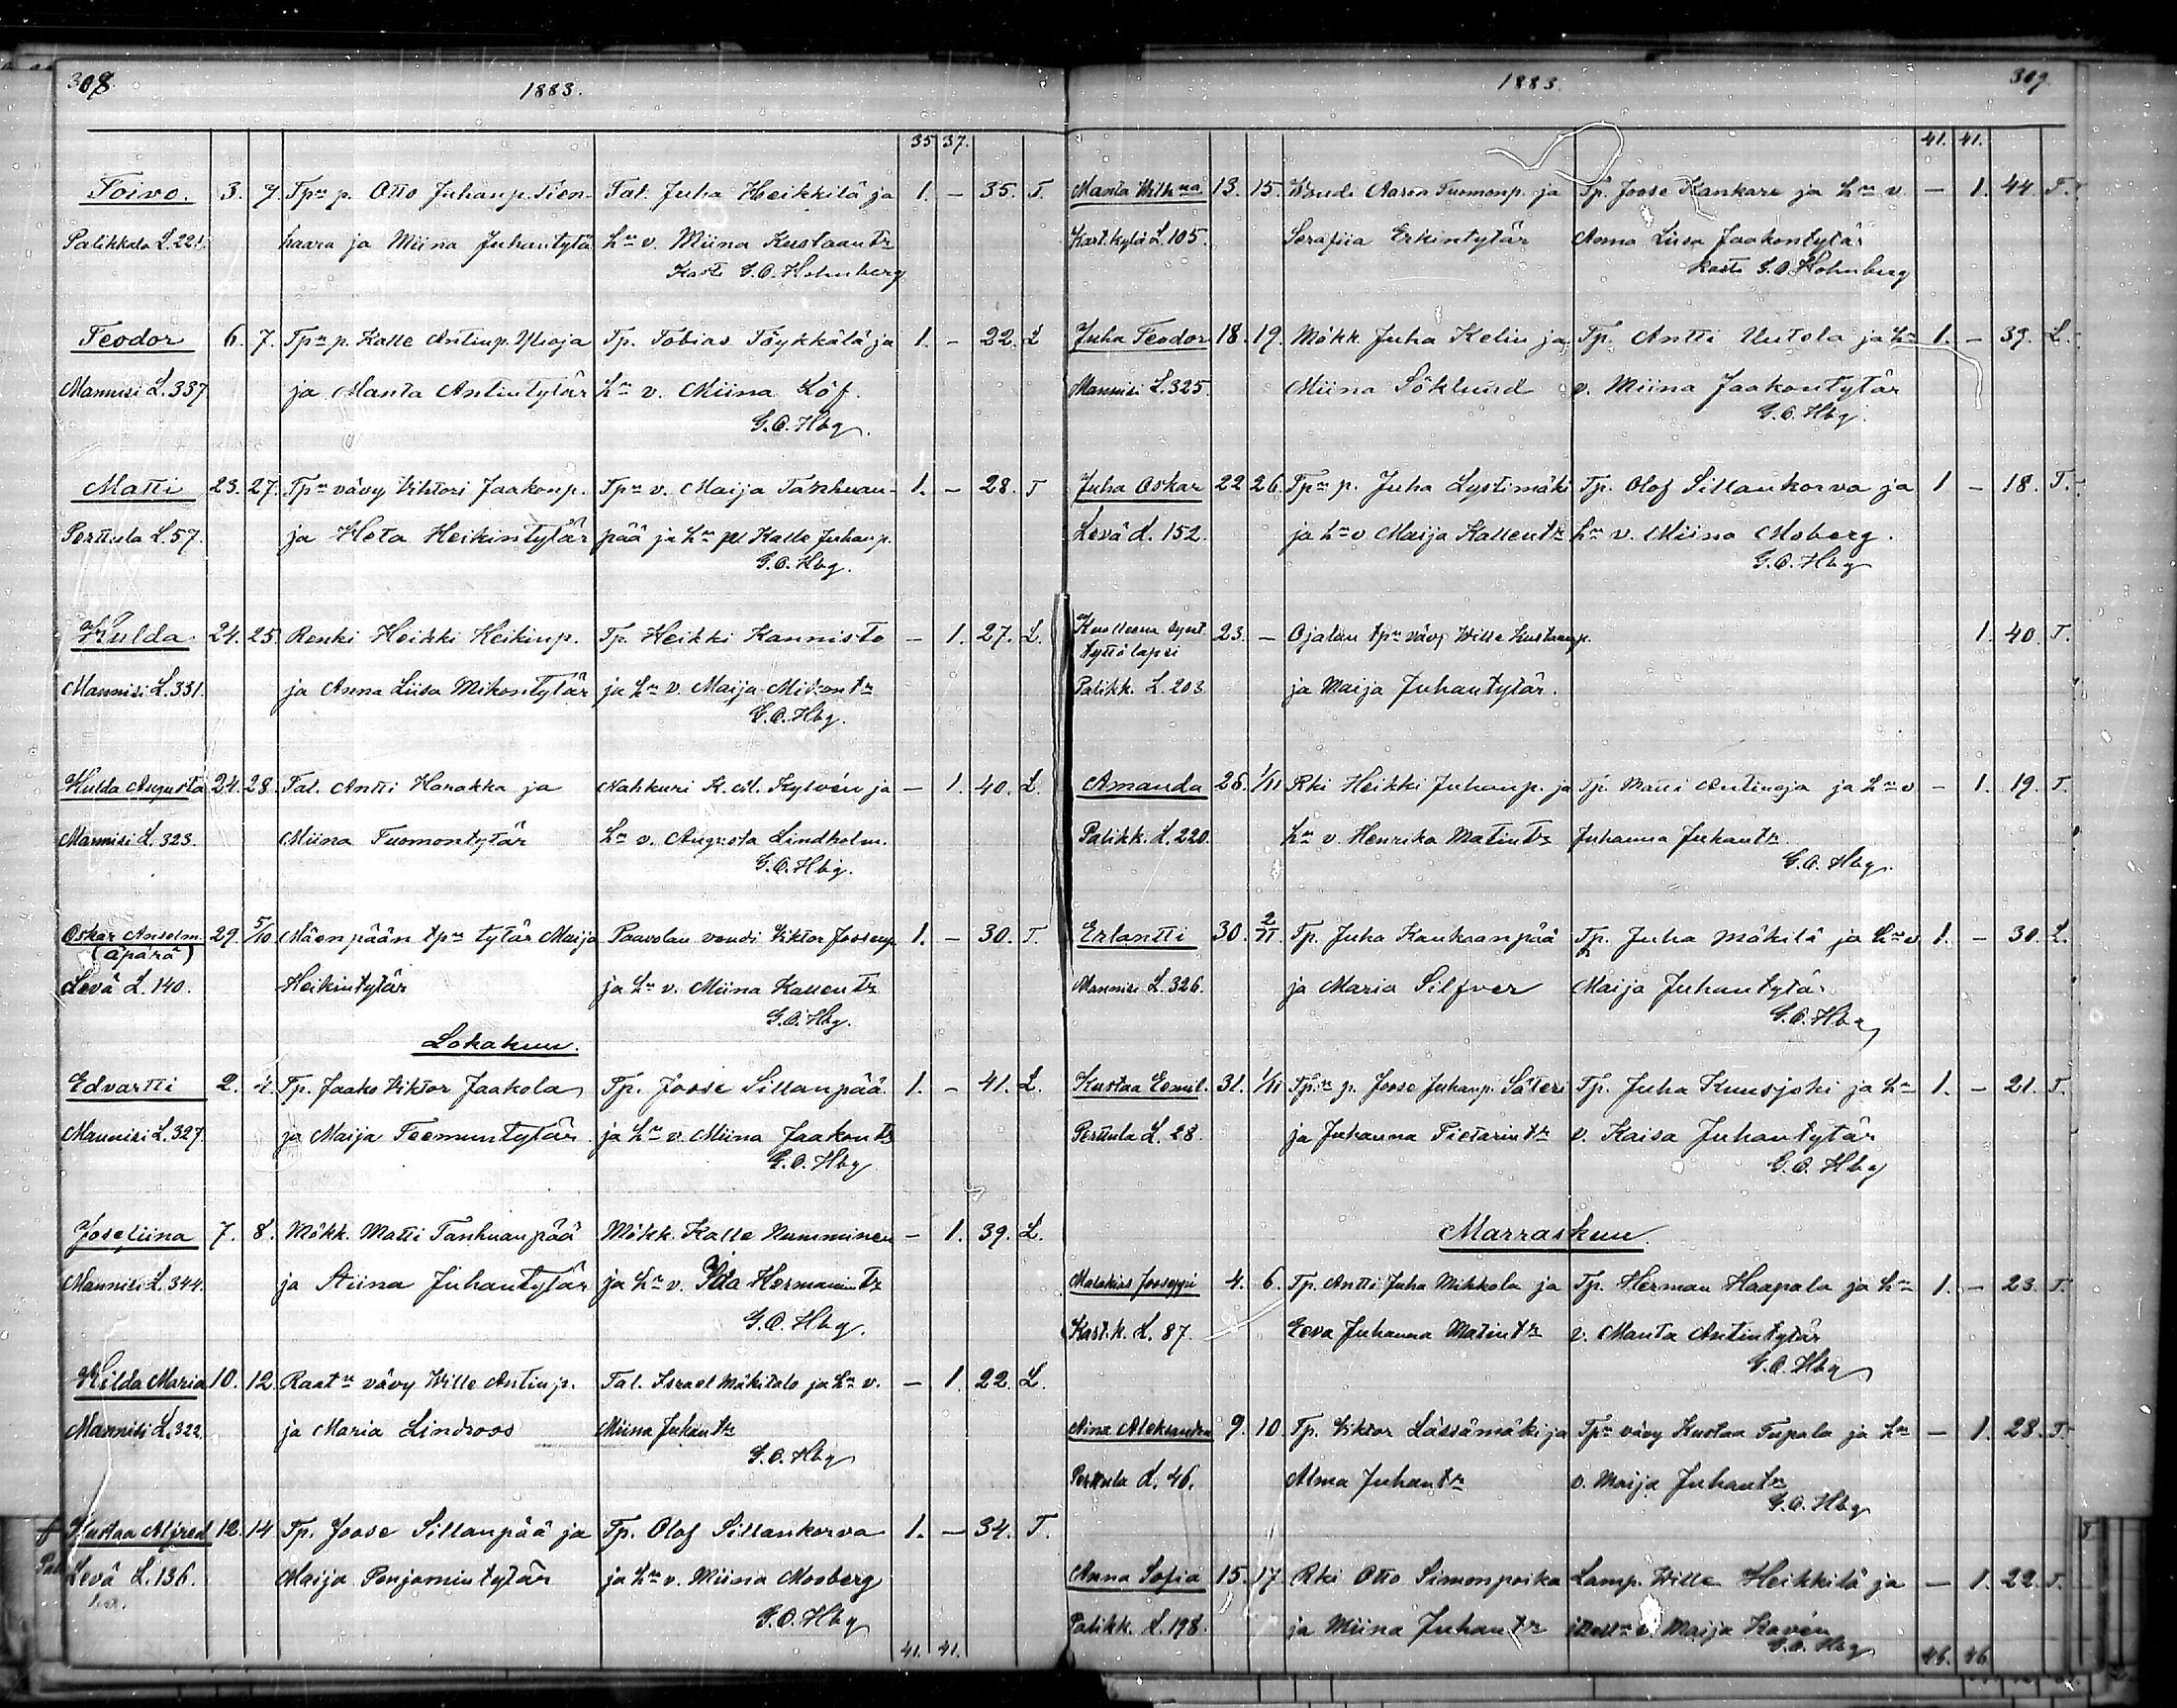 308.
1883.
35 37.
Toivo. 3. 7. Tpn p. Otto Juhanp. Tien- Tal. Juha Heikkilä ja 1. — 35. T.
Palikkala L. 221. haara ja Miina Juhantytär hn v. Miina Kustaantr
Kasti G.O. Holmberg
Feodor 6. 7. Tpn p. Kalle Antinp. Ylioja Tp. Tobias Töykkälä ja 1. — 22. L
Mannisi L. 337 ja Manta Antintytär hn v. Miina Köf.
G.O. Hbg.
Matti 23. 27. Tpn vävy Vihtori Jaakonp. Tpn v. Maija Tanhuan- 1. — 28. T
Perttula L. 57. ja Heta Heikintytär pää ja hn p. Kalle Juhanp.
G.O. Hbg.
Hulda 24. 25. Renki Heikki Heikinp. Tp. Heikki Kannisto — 1. 27. L.
Mannisi L. 331. ja Anna Liisa Mikontytär ja hn v. Maija Mikontr
G.O. Hbg.
Hulda Augusta 24. 28. Tal. Antti Harakka ja Nahkuri K. A. Kylvén ja — 1. 40. L.
Mannisi L. 323. Miina Tuomontytär hn v. Augusta Lindholm.
G.O. Hbg.
Oskar Anselm 29. 5/10 Mäenpään tpn tytär Maija Paavolan voudi Viktor Joosenp. 1. — 30. T.
(äpärä)
Levä L. 140. Heikintytär ja hn v. Miina Kallentr
G.O. Hbg.
Lokakuu.
Edvartti 2. 4. Tp. Jaako Viktor Jaakola Tp. Joose Sillanpää 1. — 41. L.
Mannisi L. 327. ja Maija Teemuntytär ja hn v. Miina Jaakontr
G.O. Hbg
Joseliina 7. 8. Mökk. Matti Tanhuanpää Mökk. Kalle Numminen — 1. 39. L.
Mannisi L. 344. ja Stiina Juhantytär ja hn v. Ida Hermannintr
G.O. Hbg.
Hilda Maria 10. 12. Raatn vävy Wille Antinp. Tal. Israel Mäkitalo ja hn v. — 1. 22. L.
Mannisi L. 322. ja Maria Lindroos Miina Juhantr
G.O. Hbg
Kustaa Alfred 12. 14 Tp. Joose Sillanpää ja Tp. Olof Sillankorva 1. — 34. T.
Levä L. 136. Maija Penjamintytär ja hn v. Miina Mosberg
G.O. Hbg
41. 41.
1883.
309.
41. 41.
Manta Wilhna 13. 15. Woudi Aaron Tuomonp. ja Tp. Joose Kankare ja hn v. — 1. 44. T.
Kart. kylä L. 105. Serafiia Erkintytär Anna Liisa Jaakontytär
Kasti G.O. Holmberg
Juha Feodor 18. 19. Mökk. Juha Kelin ja Tp. Antti Uutola ja hn 1. — 39. L.
Mannisi L. 325. Miina Söklund v. Miina Jaakontytär
G.O. Hbg.
Juha Oskar 22 26 Tpn p. Juha Lystimäki Tp. Olof Sillankorva ja 1 — 18. T.
Levä L. 152. ja hn v Maija Kallentr hn v. Miina Moberg.
G.O. Hbg
Kuolleena synt. 23. — Ojalan tpn vävy Wille Kustaanp. 1. 40. T.
tyttölapsi
Palikk. L. 203. ja Maija Juhantytär.
Amanda 26. 1/11 Rki Heikki Juhanp. ja Tp. Matti Antinoja ja hn v. — 1. 19. T.
Palikk. L. 220. hn v. Henrika Matintr Juhanna Juhantr
G.O. Hbg.
Erlantti 30. 2/11. Tp. Juha Kankaanpää Tp. Juha Mäkilä ja hn v 1. — 30. L.
Mannisi L. 326. ja Maria Silfver Maija Juhantytär
G.O. Hbg
Kustaa Eemil. 31. 1/11 Tpn p. Joose Juhanp. Säteri Tp. Juha Kuusjoki ja hn 1. — 21. T.
Perttula L. 28. ja Juhanna Pietarintr v. Kaisa Juhantytär
G.O. Hbg
Marraskuu.
Malakias Jooseppi 4. 6. Tp. Antti Juha Mikkola ja Tp. Herman Haapala ja hn 1. — 23. T.
Kart. k. L. 87. Eeva Juhanna Matintr v. Manta Antintytär
G.O. Hbg
Aina Aleksandra 9. 10 Tp. Viktor Lässämäki ja Tpn vävy Kustaa Tupala ja hn — 1. 28. T.
Perttula L. 46. Alma Juhantr v. Maija Juhantr
G.O. Hbg
Anna Sofia 15. 17. Rki Otto Simonpoika Lamp. Wille Heikkilä ja — 1. 22. T.
Palikk. L. 198. ja Miina Juhantr v. Maija Kavén
G.O. Hbg
46. 46.